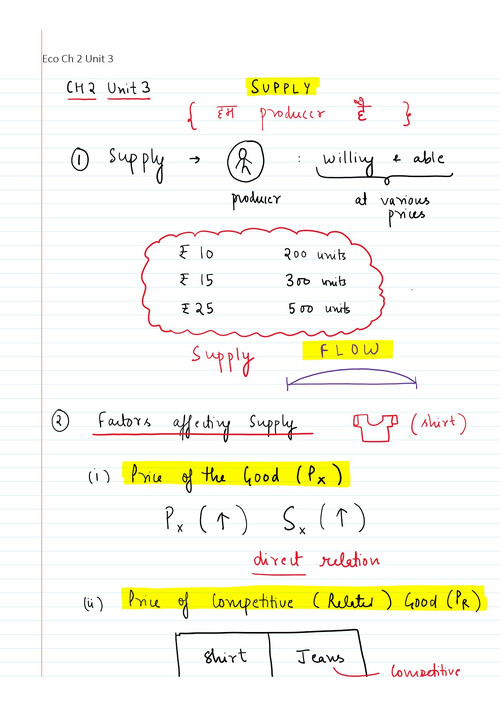 Eco Ch 2 Unit 3
CH 2 Unit 3
SUPPLY
{ हम producer हैं }
① Supply → : willing & able
producer
at various
prices
₹ 10 200 units
₹ 15 300 units
₹ 25 500 units
Supply FLOW
② Factors affecting Supply (shirt)
(i) Price of the Good (Px)
Px (↑) Sx (↑)
direct relation
(ii) Price of Competitive (Related) Good (PR)
Shirt Jeans
Competitive